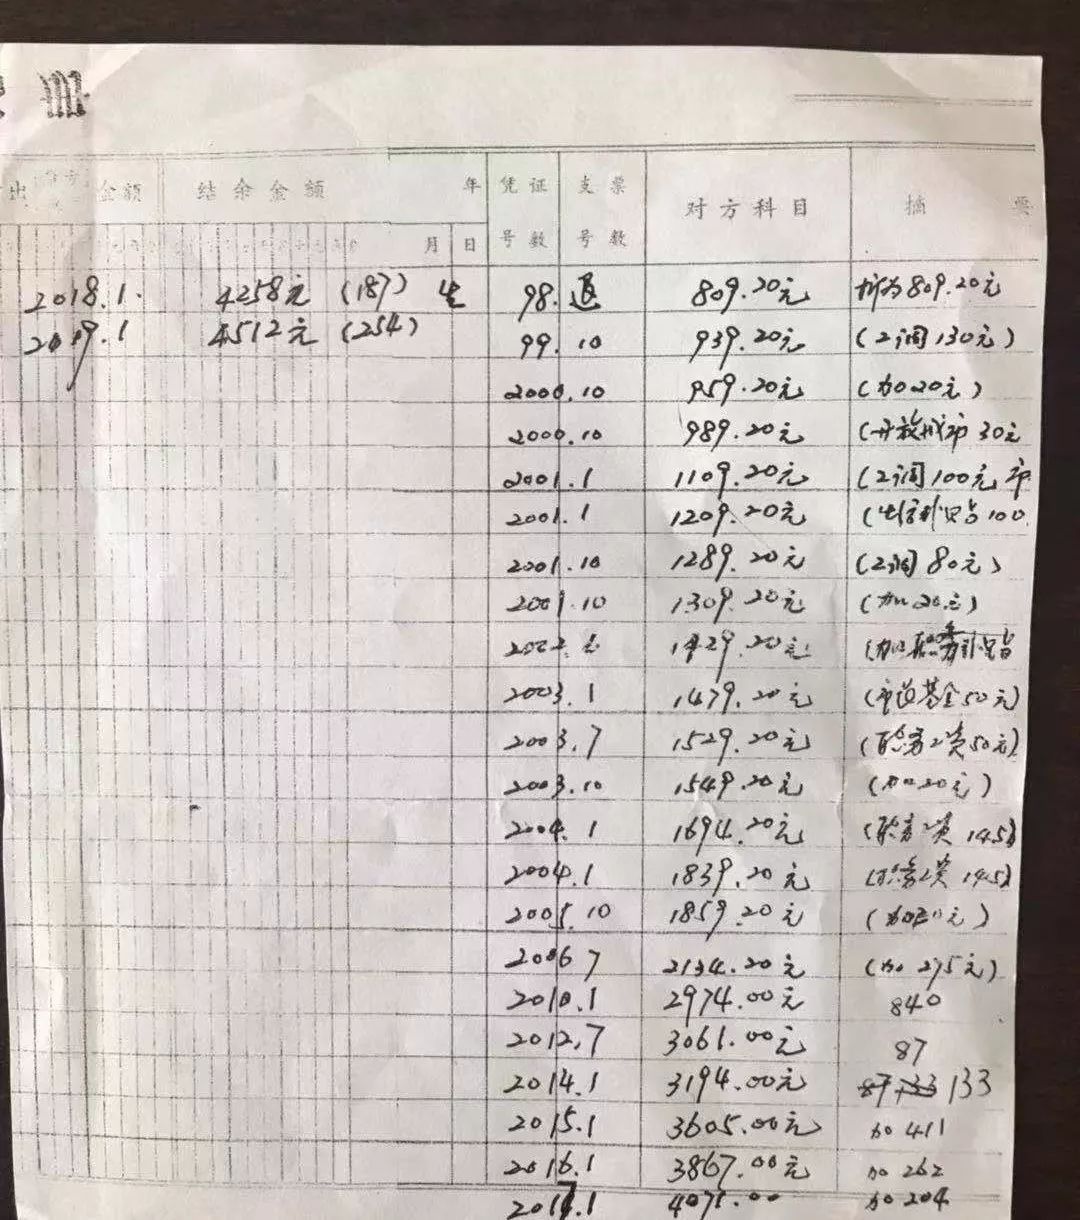 出 金额 结余金额 年 凭证 支票 对方科目 摘 要
月 日 号数 号数
2018.1. 4258元 (187) 98. 退 809.20元 809.20元
2019.1 4512元 (254) 99. 10 939.20元 (2调130元)
2000.10 959.20元 (加20元)
2000.10 989.20元 (开放城市30元
2001.1 1109.20元 (2调100元 市
2001.1 1209.20元 (生活补贴100
2001.10 1289.20元 (2调80元)
2001.10 1309.20元 (加20元)
1429.20元 (加职务补贴
2003.1 1479.20元 基金50元)
2003.7 1529.20元 (职务工资50元)
2003.10 1549.20元 (加20元)
2004.1 1694.20元 (职务工资145)
2004.1 1839.20元 (职务工资145)
2005.10 1859.20元 (加20元)
2006 7 2134.20元 (加275元)
2010.1 2974.00元 840
2012.7 3061.00元 87
2014.1 3194.00元 133
2015.1 3605.00元 加411
2016.1 3867.00元 加262
2017.1 4071.00 加204